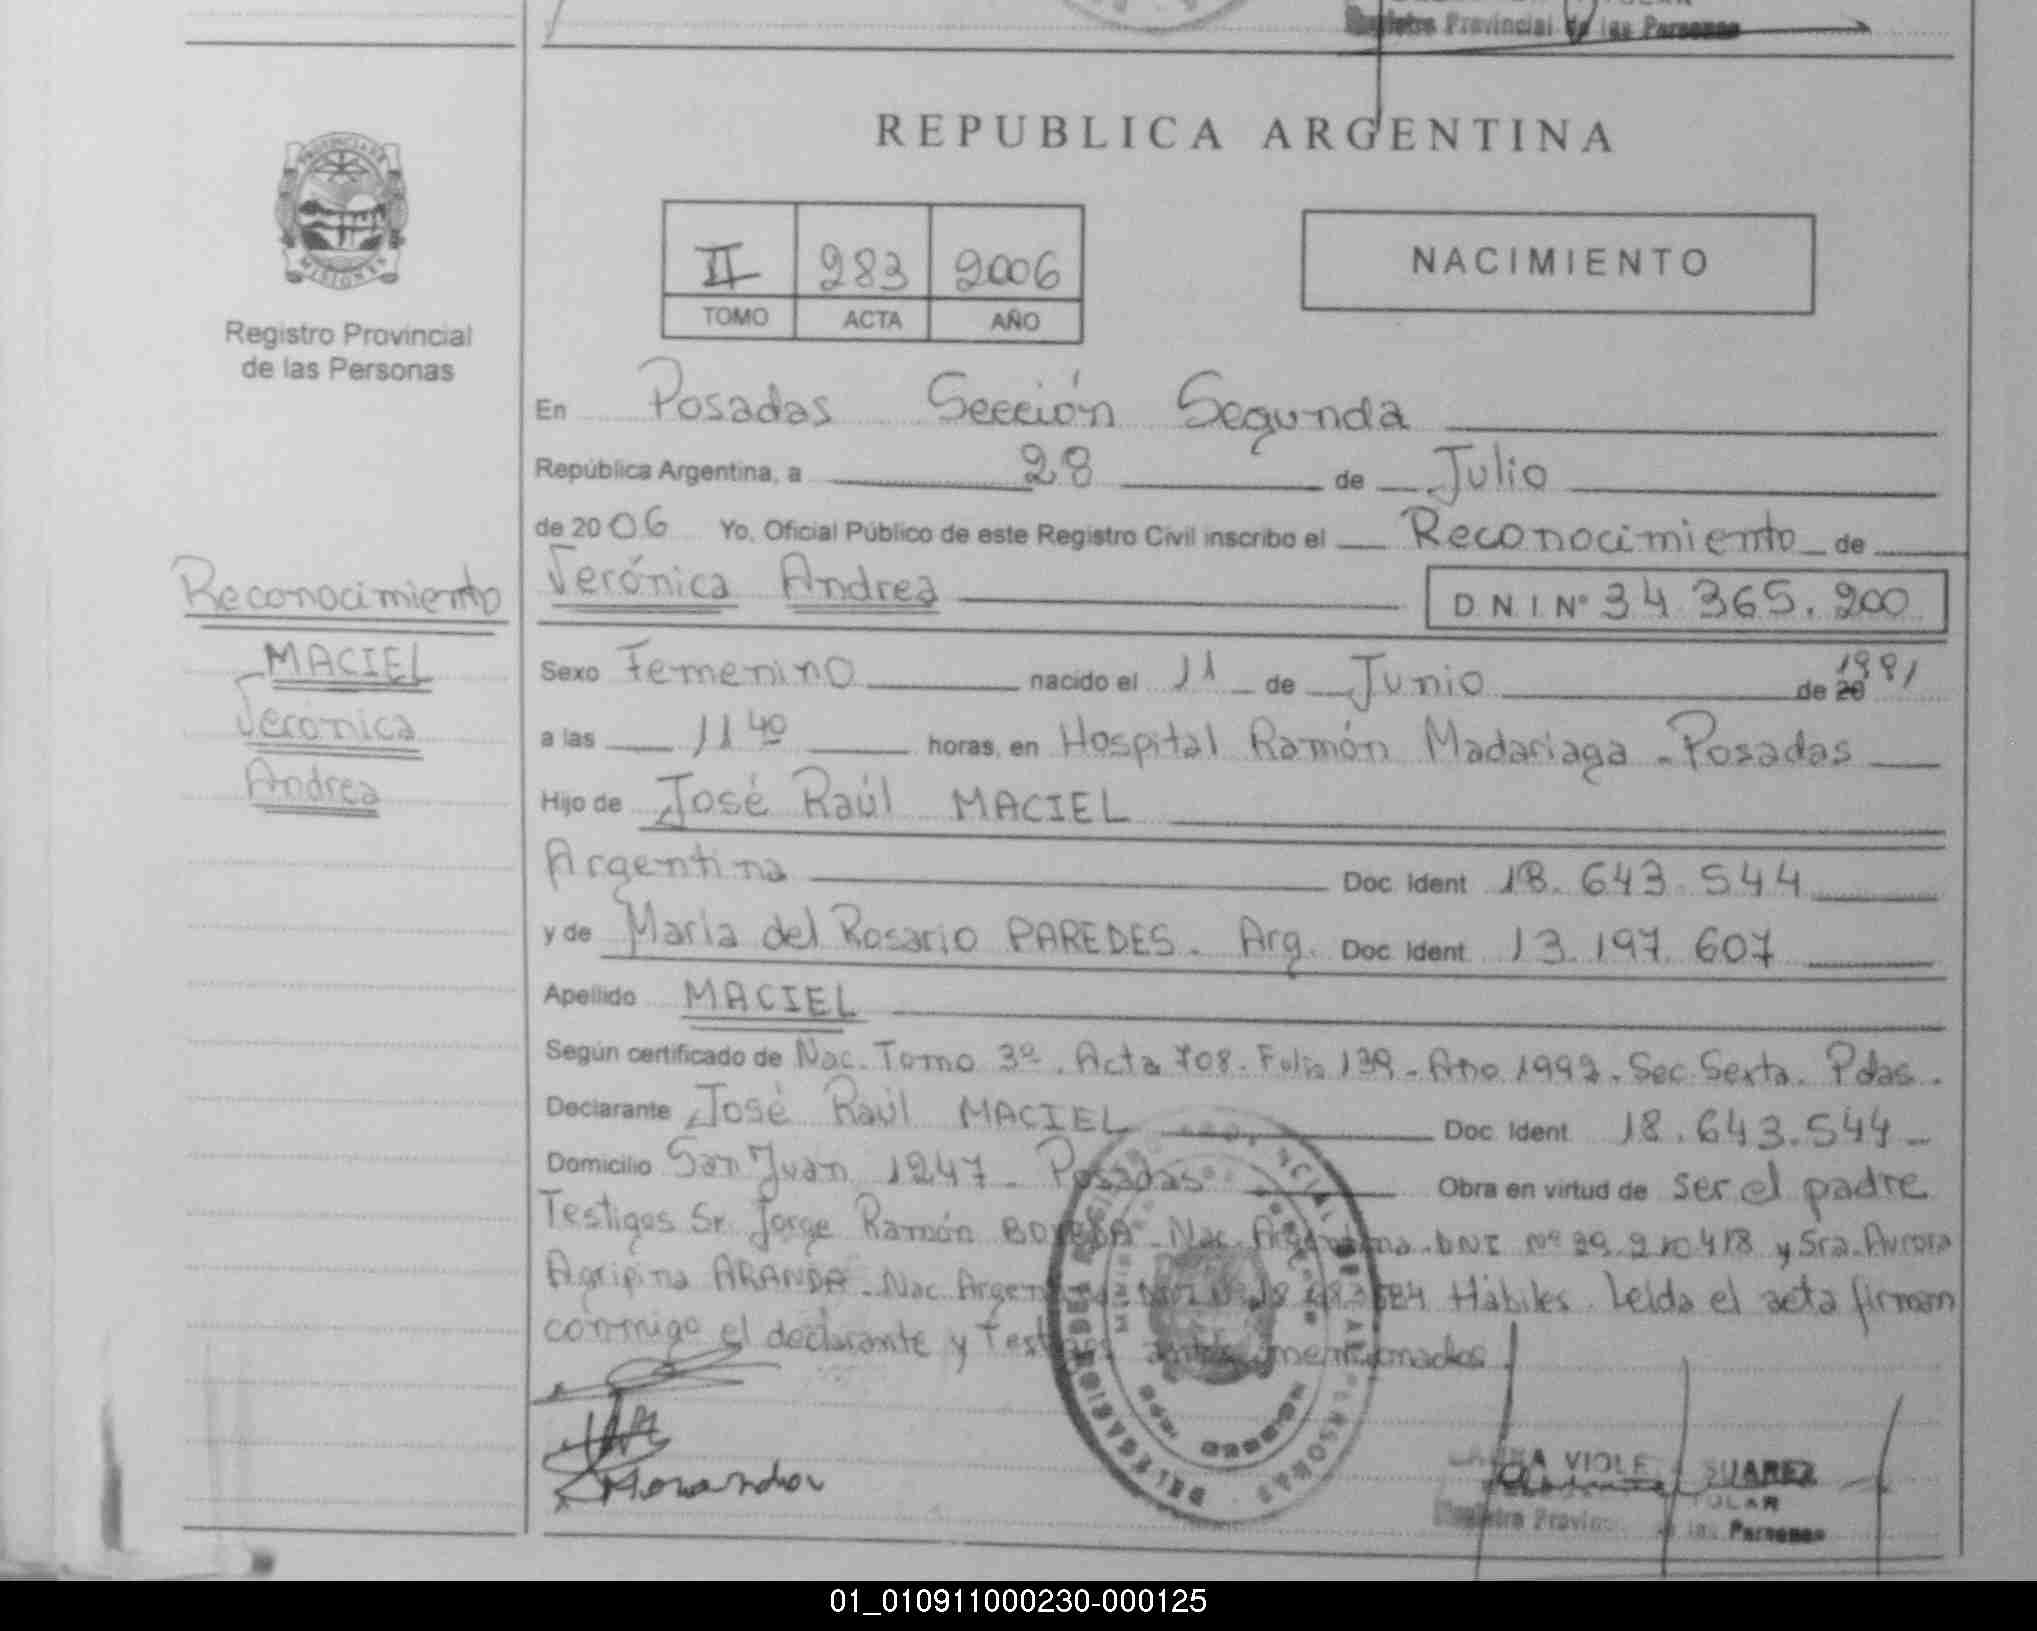 Registro Provincial de las Personas
REPUBLICA ARGENTINA
PROVINCIA DE
MISIONES
Registro Provincial
de las Personas
II 283 2006
TOMO ACTA AÑO
NACIMIENTO
En Posadas Sección Segunda
República Argentina, a 28 de Julio
de 2006 Yo, Oficial Público de este Registro Civil inscribo el Reconocimiento de
Verónica Andrea D.N.I. Nº 34.365.200
Reconocimiento
MACIEL
Verónica
Andrea
Sexo Femenino nacido el 11 de Junio de 20 1991
a las 11 40 horas, en Hospital Ramón Madariaga - Posadas
Hijo de José Raúl MACIEL
Argentina Doc. Ident. 18.643.544
y de María del Rosario PAREDES. Arg. Doc. Ident. 13.197.607
Apellido MACIEL
Según certificado de Nac. Tomo 3º. Acta 708. Folio 139. Año 1992. Sec. Sexta. Pdas.
Declarante José Raúl MACIEL Doc. Ident. 18.643.544
Domicilio San Juan 1247 - Posadas Obra en virtud de ser el padre
Testigos Sr. Jorge Ramón Nac. Argentina. DNI Nº y Sra. Aurora
Agripina ARANDA. Nac. Hábiles. Leída el acta firman
conmigo el declarante y testigos antes mencionados
SUAREZ
Registro Provincial de las Personas
01_010911000230-000125